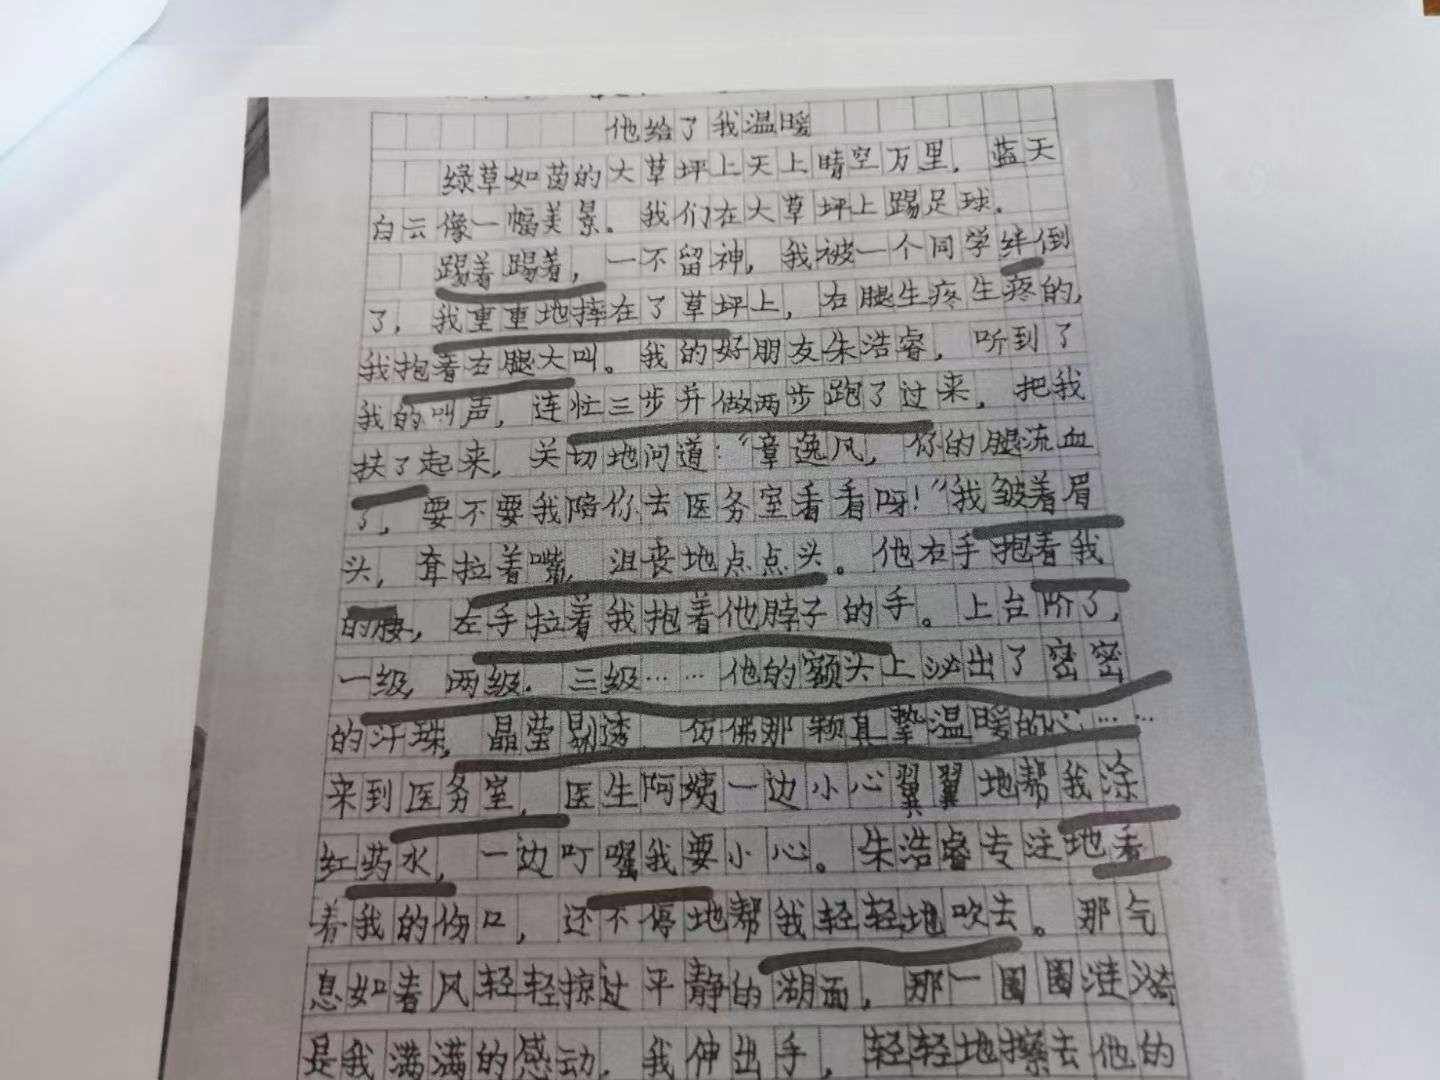 他给了我温暖
绿草如茵的大草坪上天上晴空万里，蓝天
白云像一幅美景。我们在大草坪上踢足球。
踢着踢着，一不留神，我被一个同学绊倒
了，我重重地摔在了草坪上，右腿生疼生疼的，
我抱着右腿大叫。我的好朋友朱浩睿，听到了
我的叫声，连忙三步并做两步跑了过来，把我
扶了起来，关切地问道：“章逸风，你的腿流血
了，要不要我陪你去医务室看看呀！”我皱着眉
头，耷拉着嘴，沮丧地点点头。他右手抱着我
的腰，左手拉着我抱着他脖子的手。上台阶了，
一级，两级，三级……他的额头上泌出了密密
的汗珠，晶莹剔透 仿佛那颗真挚温暖的心……
来到医务室，医生阿姨一边小心翼翼地帮我涂
红药水，一边叮嘱我要小心。朱浩睿专注地看
着我的伤口，还不停地帮我轻轻地吹去。那气
息如春风轻轻掠过平静的湖面，那一圈圈涟漪
是我满满的感动。我伸出手，轻轻地擦去他的